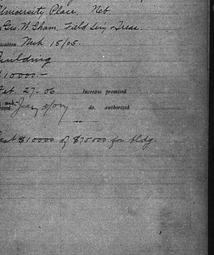 University Place, Neb.
Geo. W. Isham, Field Sec'y, Treas.
Nov 15/05.
Building
$10000-
Feb. 27-06 Increase promised
Jany 8/07 do. authorized
last $10000 of $70000 for bldg.